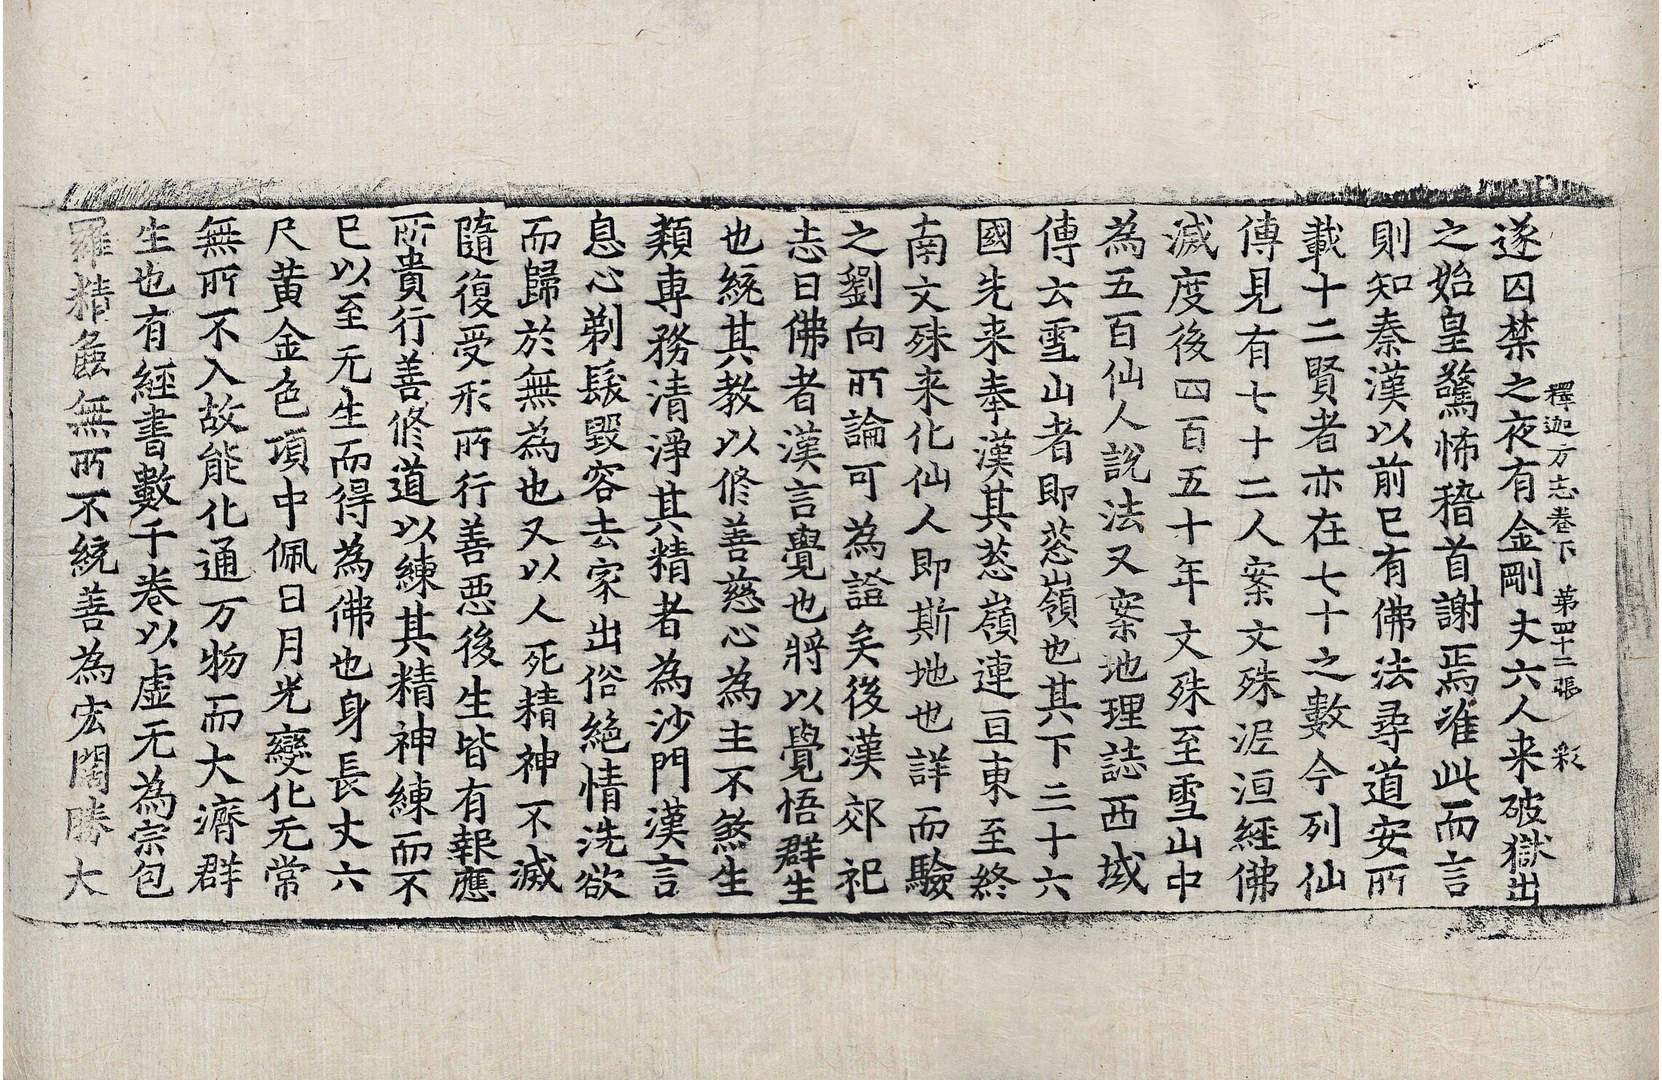 釋迦方志卷下 第四十二張 彩
遂囚禁之夜有金剛丈六人来破獄出
之始皇驚怖稽首謝焉准此而言
則知秦漢以前已有佛法尋道安所
載十二賢者亦在七十之數今列仙
傳見有七十二人案文殊涅洹經佛
滅度後四百五十年文殊至雪山中
為五百仙人說法又案地理誌西域
傳云雪山者即葱嶺也其下三十六
國先来奉漢其葱嶺連亘東至終
南文殊来化仙人即斯地也詳而驗
之劉向所論可為證矣後漢郊祀
志曰佛者漢言覺也將以覺悟群生
也統其教以修善慈心為主不煞生
類專務清淨其精者為沙門漢言
息心剃髮毀容去家出俗絕情洗欲
而歸於無為也又以人死精神不滅
隨復受形所行善惡後生皆有報應
所貴行善修道以練其精神練而不
已以至无生而得為佛也身長丈六
尺黄金色項中佩日月光變化无常
無所不入故能化通万物而大濟群
生也有經書數千卷以虛无為宗包
羅精麁無所不統善為宏闊勝大